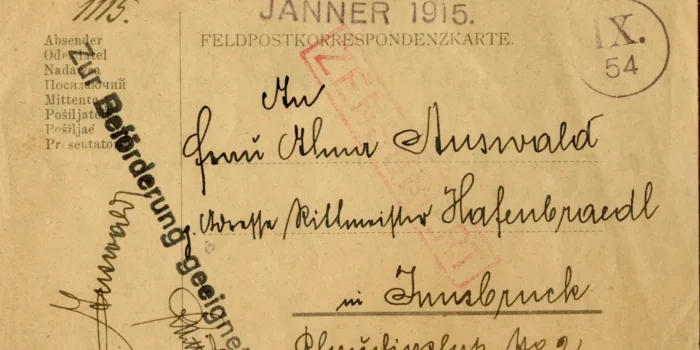 1115.
JÄNNER 1915.
FELDPOSTKORRESPONDENZKARTE.
IX.
54
Absender
Odesílatel
Nadawca
Посилаючий
Mittente
Pošiljatelj
Pošiljač
Presentator
Zur Beförderung geeignet
ZENSURIERT
An
Frau Alma Auswald
p. Adresse Rittmeister Hafenbraedl
in Innsbruck
No 2,